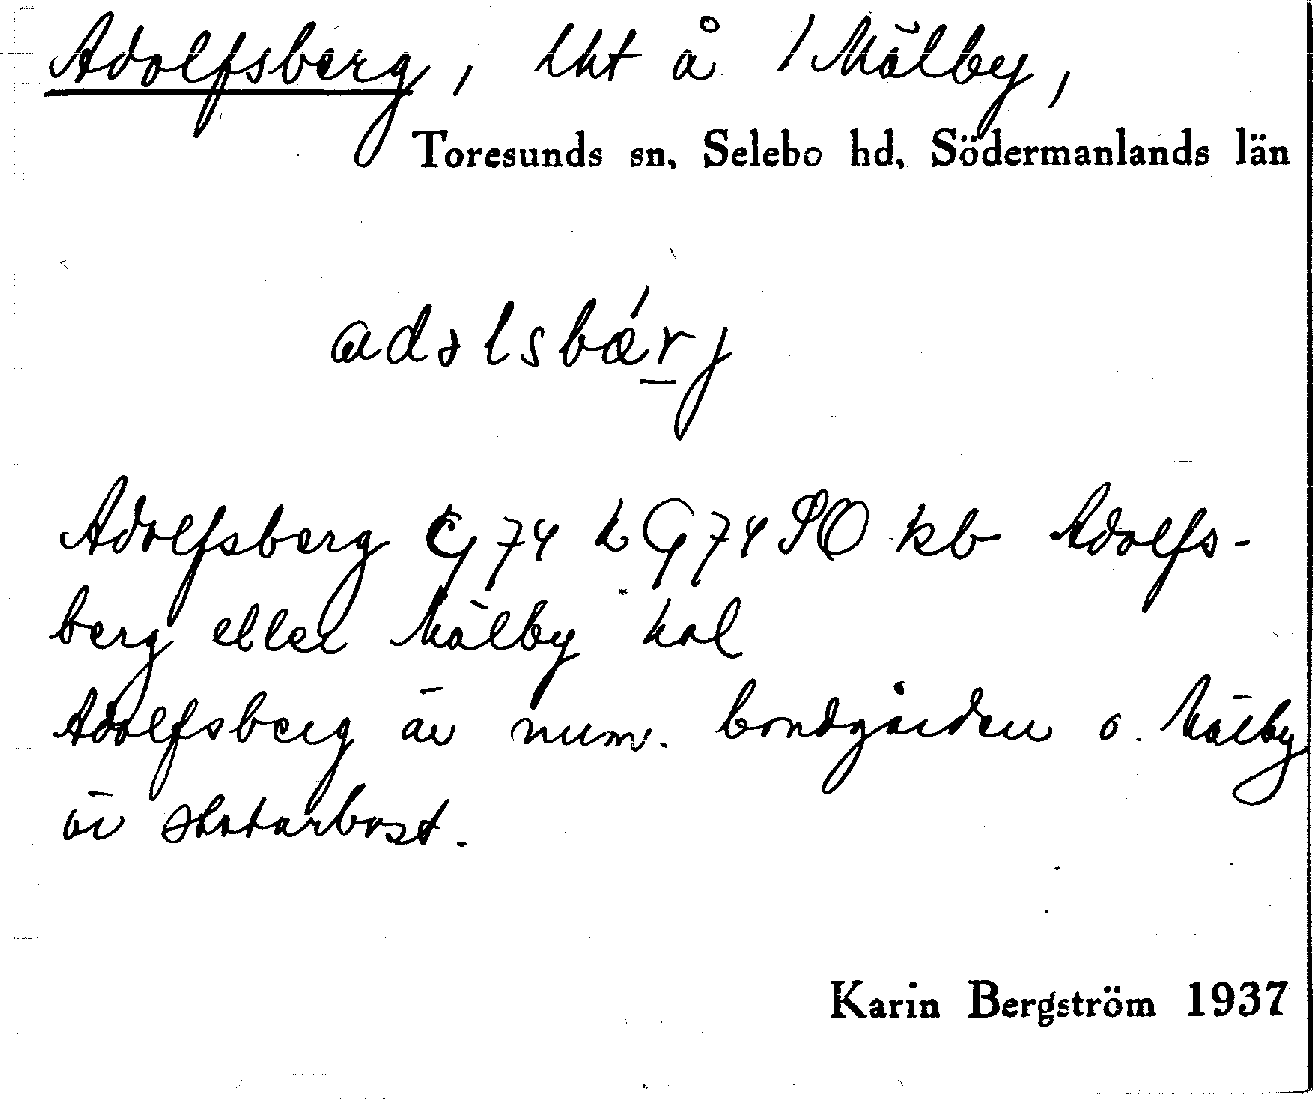 Adolfsberg, lht å 1 Mälby,
Toresunds sn, Selebo hd, Södermanlands län
adolsbǽrj
Adolfsberg G 74 L G 74 SO kb Adolfs-
berg eller Mälby kol
Adolfsberg är num. bondgården o. Mälby
är statarbost.
Karin Bergström 1937